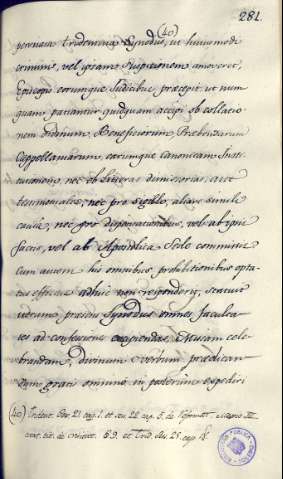 281.
pernam Tridentina Synodus, ut hujusmodi (40)
criminis, vel etiam suspicionem amoveret,
Episcopis eorumque Judicibus præcepit ut num
quam patiantur quidquam accipi ob collatio
nem ordinum, Beneficiorum, Præbendarum
Cappellaniarum, eorumque canonicam Insti
tutionem, nec ob literas dimissorias, aut
testimoniales, nec pro sigillo, aliave simili
causa, nec pro dispensationibus, vel ab ipsis
factis, vel ab Apostolica Sede commissis
Cum autem his omnibus prohibitionibus opta
tus effectus adhuc non respondeat, statuit
præsens Synodus omnes faculta
tes ad confessiones excipiendas, Missam cele
brandam, divinum verbum prædican
dum gratis omnino in posterum expediri
(40) Trident. Ses. 21 cap. 1. et ses. 22 cap. 5. de reformat.
et Trid. ses. 25. cap. 18.